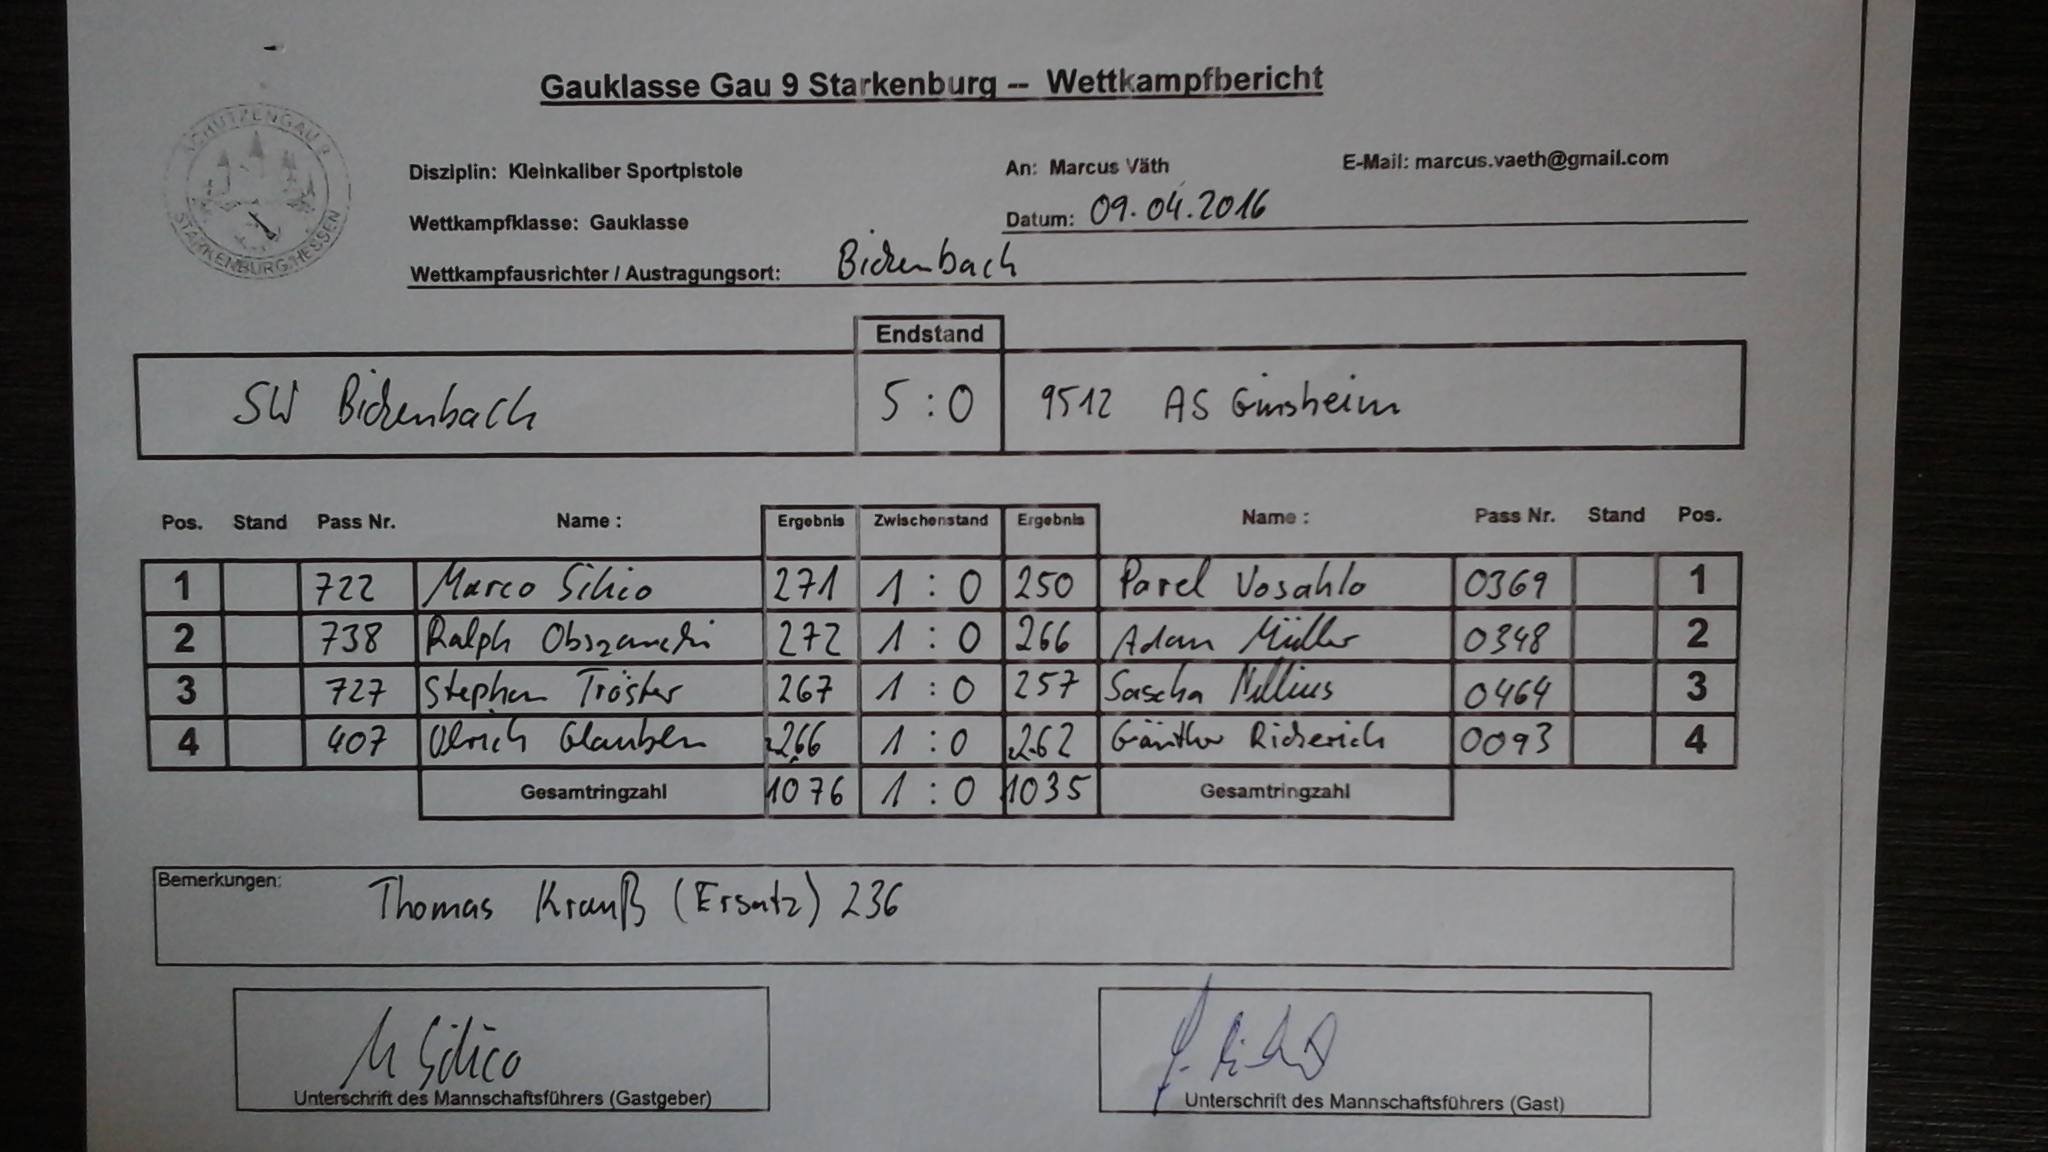 Gauklasse Gau 9 Starkenburg -- Wettkampfbericht
SCHÜTZENGAU 9
STARKENBURG/HESSEN
Disziplin: Kleinkaliber Sportpistole An: Marcus Väth E-Mail: marcus.vaeth@gmail.com
Wettkampfklasse: Gauklasse Datum: 09.04.2016
Wettkampfausrichter / Austragungsort: Bickenbach
Endstand
SW Bickenbach 5 : 0 9512 AS Ginsheim
Pos. Stand Pass Nr. Name : Ergebnis Zwischenstand Ergebnis Name : Pass Nr. Stand Pos.
1 722 Marco Silico 271 1 : 0 250 Pavel Vosahlo 0369 1
2 738 Ralph 272 1 : 0 266 Adam Müller 0348 2
3 727 Stephan Tröster 267 1 : 0 257 Sascha 0464 3
4 407 Ulrich Glauben 266 1 : 0 262 Günther Ricberich 0093 4
Gesamtringzahl 1076 1 : 0 1035 Gesamtringzahl
Bemerkungen: Thomas Krauß (Ersatz) 236
M Silico
Unterschrift des Mannschaftsführers (Gastgeber) Unterschrift des Mannschaftsführers (Gast)